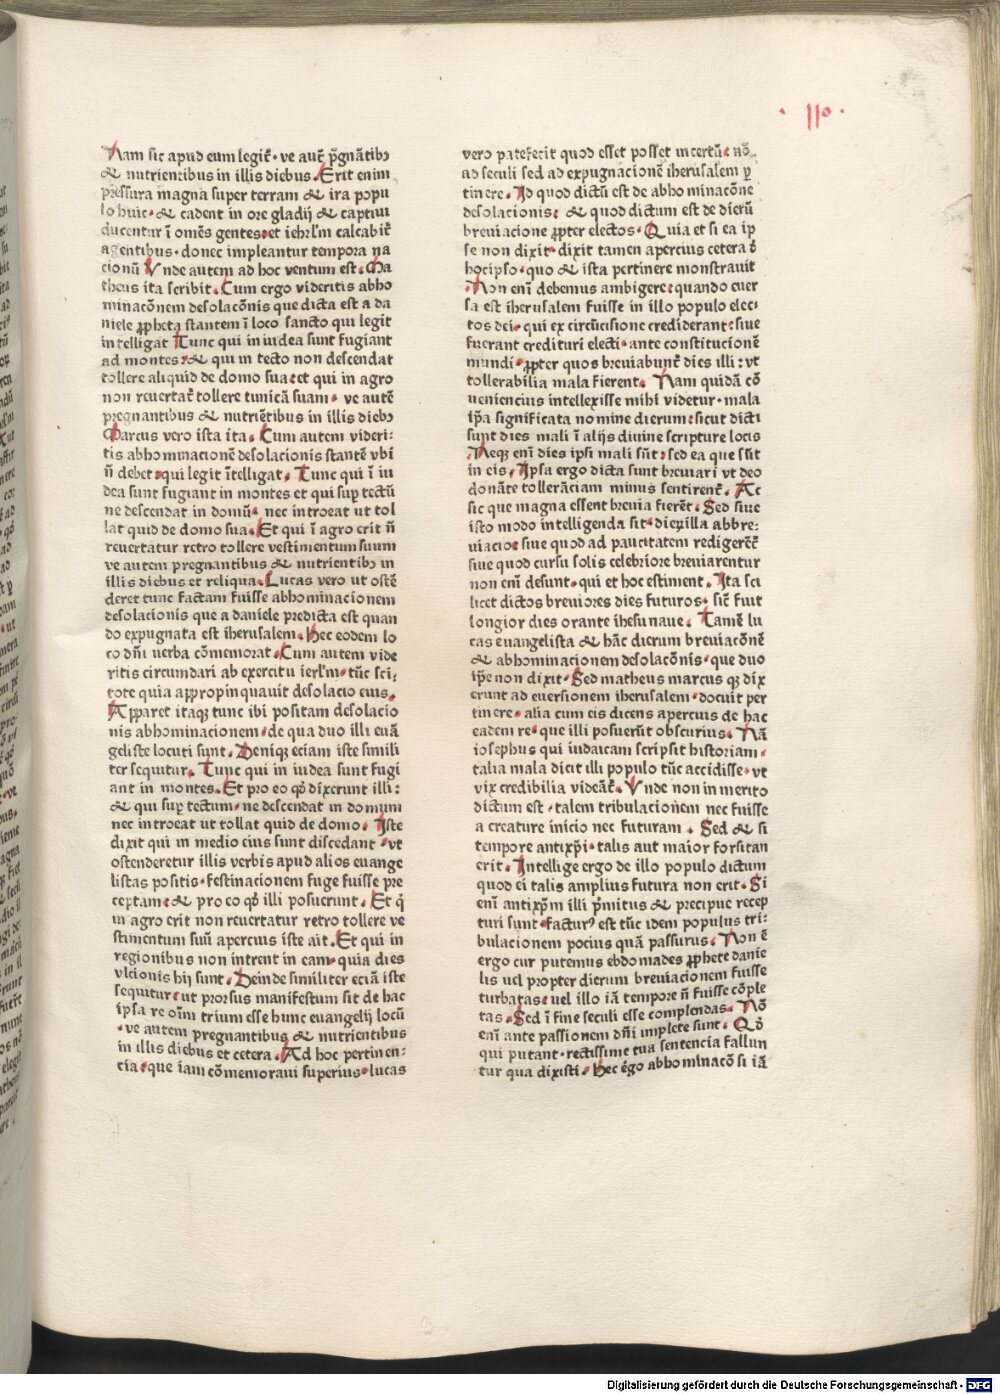 · 110 ·
Nam sic apud eum legit᷑· ve aut᷑ p̄gnātibꝫ
& nutrientibus in illis diebus· Erit enim
pressura magna super terram & ira popu
lo huic· & cadent in ore gladij & captiui
ducentur ī omēs gentes· et ieħrl'm calcabit᷑
a gentibus· donec impleantur tempora na
cionū Vnde autem ad hoc ventum est· Ma
theus ita scribit· Cum ergo videritis abho
minacōnem desolacōnis que dicta est a da
niele ꝓpheta stantem ī loco sancto qui legit
intelligat Tunc qui in iudea sunt fugiant
ad montes: & qui in tecto non descendat
tollere aliquid de domo sua: et qui in agro
non reuertat᷑ tollere tunicā suam· ve autē
pregnantibus & nutriētibus in illis diebꝫ
Marcus vero ista ita· Cum autem videri:
tis abhominacionē desolacionis stantē vbi
ñ debet· qui legit ītelligat· Tunc qui ī iu
dea sunt fugiant in montes et qui suꝑ tectū
ne descendat in domū· nec introeat ut tol
lat quid de domo sua· Et qui ī agro erit ñ
reuertatur retro tollere vestimentum suum
ve autem pregnantibus & nutrientibꝫ in
illis diebus et reliqua· Lucas vero ut ostē
deret tunc factam fuisse abhominacionem
desolacionis que a daniele predicta est quan
do expugnata est iherusalem· Hec eodem lo
co dn̄i uerba cōmemorat· Cum autem vide
ritis circumdari ab exercitu ierl'm· tūc sci:
tote quia appropinquauit desolacio eius·
Apparet itaqꝫ tunc ibi positam desolacio
nis abhominacionem· de qua duo illi euā
geliste locuti sunt· Deniqꝫ eciam iste simili
ter sequitur· Tunc qui in iudea sunt fugi
ant in montes· Et pro eo qđ dixerunt illi:
& qui suꝑ tectum· ne descendat in domum
nec introeat ut tollat quid de domo· Iste
dixit qui in medio eius sunt discedant· vt
ostenderetur illis verbis apud alios euange
listas positis· festinacionem fuge fuisse pre
ceptam: & pro eo qđ illi posuerunt· Et q̇
in agro erit non reuertatur retro tollere ve
stimentum suū apercius iste ait· Et qui in
regionibus non intrent in eam· quia dies
vlcionis hij sunt· Deinde similiter eciā iste
sequitur: ut prorsus manifestum sit de hac
ipsa re oīm trium esse hunc euangelij locū
· ve autem pregnantibus & nutrientibus
in illis diebus et cetera· Ad hoc pertinen:
tia· que iam cōmemoraui superius· lucas
vero patefecit quod esset posset incertū: nō
ad seculi sed ad expugnacionē iherusalem ꝑ
tinere· Id quod dictū est de abhominacōne
desolacionis: & quod dictum est de dierū
breuiacione ꝓpter electos· Quia et si ea ip
se non dixit· dixit tamen apercius cetera đ
hoc ipso· quo & ista pertinere monstrauit
· Non enī debemus ambigere: quando euer
sa est iherusalem fuisse in illo populo elec:
tos dei· qui ex circūcisione crediderant: siue
fuerant credituri electi· ante constitucionē
mundi· ꝓpter quos breuiabunt᷑ dies illi: vt
tollerabilia mala fierent· Nam quidā cō
ueniencius intellexisse mihi videtur· mala
ip̄a significata nomine dierum: sicut dicti
sunt dies mali ī alijs diuine scripture locis
· Neqꝫ enī dies ipsi mali sūt: sed ea que sūt
in eis· Ipsa ergo dicta sunt breuiari vt deo
donāte tollerāciam minus sentirent᷑· Ac
sic que magna essent breuia fierēt· Sed siue
isto modo intelligenda sit· dierilla abbre:
uiacio: siue quod ad paucitatem redigerēt᷑
siue quod cursu solis celebriore breuiarentur
non enī desunt· qui et hoc estiment· Ita sci
licet dictos breuiores dies futuros· sic̄ fuit
longior dies orante ihesu naue· Tamē lu
cas euangelista & hāc dierum breuiacōnē
& abhominacionem desolacōnis· que duo
ip̄e non dixit· Sed matheus marcus qꝫ dix
erunt ad euersionem iherusalem· docuit per
tinere· alia cum eis dicens apercius de hac
eadem re· que illi posuerūt obscurius· Nā
iosephus qui iudaicam scripsit historiam·
talia mala dicit illi populo tūc accidisse· vt
vix credibilia videāt᷑· Vnde non in merito
dictum est· talem tribulacionem nec fuisse
a creature inicio nec futuram· Sed & si
tempore antixp̄i· talis aut maior forsitan
erit· Intellige ergo de illo populo dictum
quod ei talis amplius futura non erit· Si
enī antixp̄m illi p̄mitus & precipue recep
turi sunt· factur᷒ est tūc idem populus tri:
bulacionem pocius quā passurus· Non ē
ergo cur putemus ebdomades ꝓphete danie
lis uel propter dierum breuiacionem fuisse
turbatas: uel illo iā tempore ñ fuisse cōple
tas· Sed ī fine seculi esse complendas· Nō
enī ante passionem dn̄i implete sunt· Qđ
qui putant· rectissime tua sentencia fallun
tur qua dixisti· Hec ēgo abhominacō si iā
Digitalisierung gefördert durch die Deutsche Forschungsgemeinschaft - DFG